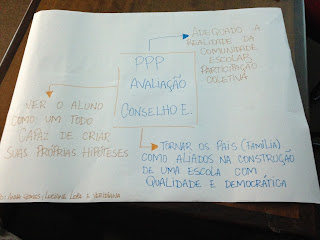 ADEQUADO A
REALIDADE DA
COMUNIDADE
ESCOLAR
PARTICIPAÇÃO
COLETIVA
PPP
AVALIAÇÃO
CONSELHO E.
VER O ALUNO
COMO UM TODO
CAPAZ DE CRIAR
SUAS PRÓPRIAS HIPÓTESES
TORNAR OS PAIS (FAMÍLIA)
COMO ALIADOS NA CONSTRUÇÃO
DE UMA ESCOLA COM
QUALIDADE E DEMOCRÁTICA
GOMES, LUCIANE